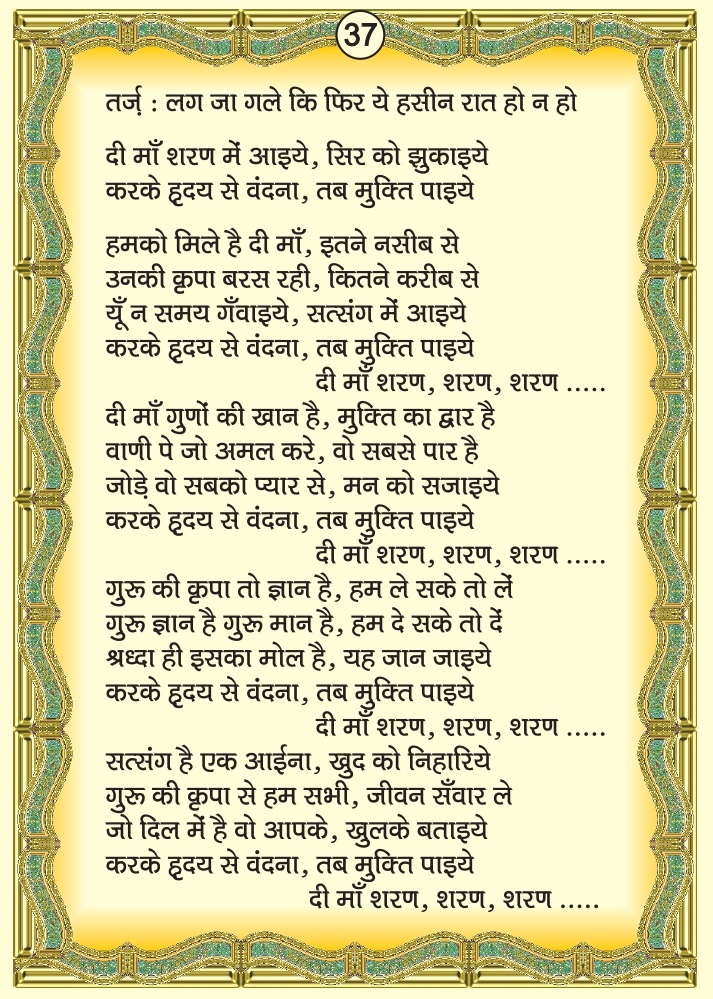 37
तर्ज़ : लग जा गले कि फिर ये हसीन रात हो न हो
दी माँ शरण में आइये, सिर को झुकाइये
करके हृदय से वंदना, तब मुक्ति पाइये
हमको मिले है दी माँ, इतने नसीब से
उनकी कृपा बरस रही, कितने करीब से
यूँ न समय गँवाइये, सत्संग में आइये
करके हृदय से वंदना, तब मुक्ति पाइये
दी माँ शरण, शरण, शरण .....
दी माँ गुणों की खान है, मुक्ति का द्वार है
वाणी पे जो अमल करे, वो सबसे पार है
जोड़े वो सबको प्यार से, मन को सजाइये
करके हृदय से वंदना, तब मुक्ति पाइये
दी माँ शरण, शरण, शरण .....
गुरू की कृपा तो ज्ञान है, हम ले सके तो लें
गुरू ज्ञान है गुरू मान है, हम दे सके तो दें
श्रध्दा ही इसका मोल है, यह जान जाइये
करके हृदय से वंदना, तब मुक्ति पाइये
दी माँ शरण, शरण, शरण .....
सत्संग है एक आईना, खुद को निहारिये
गुरू की कृपा से हम सभी, जीवन सँवार ले
जो दिल में है वो आपके, खुलके बताइये
करके हृदय से वंदना, तब मुक्ति पाइये
दी माँ शरण, शरण, शरण .....